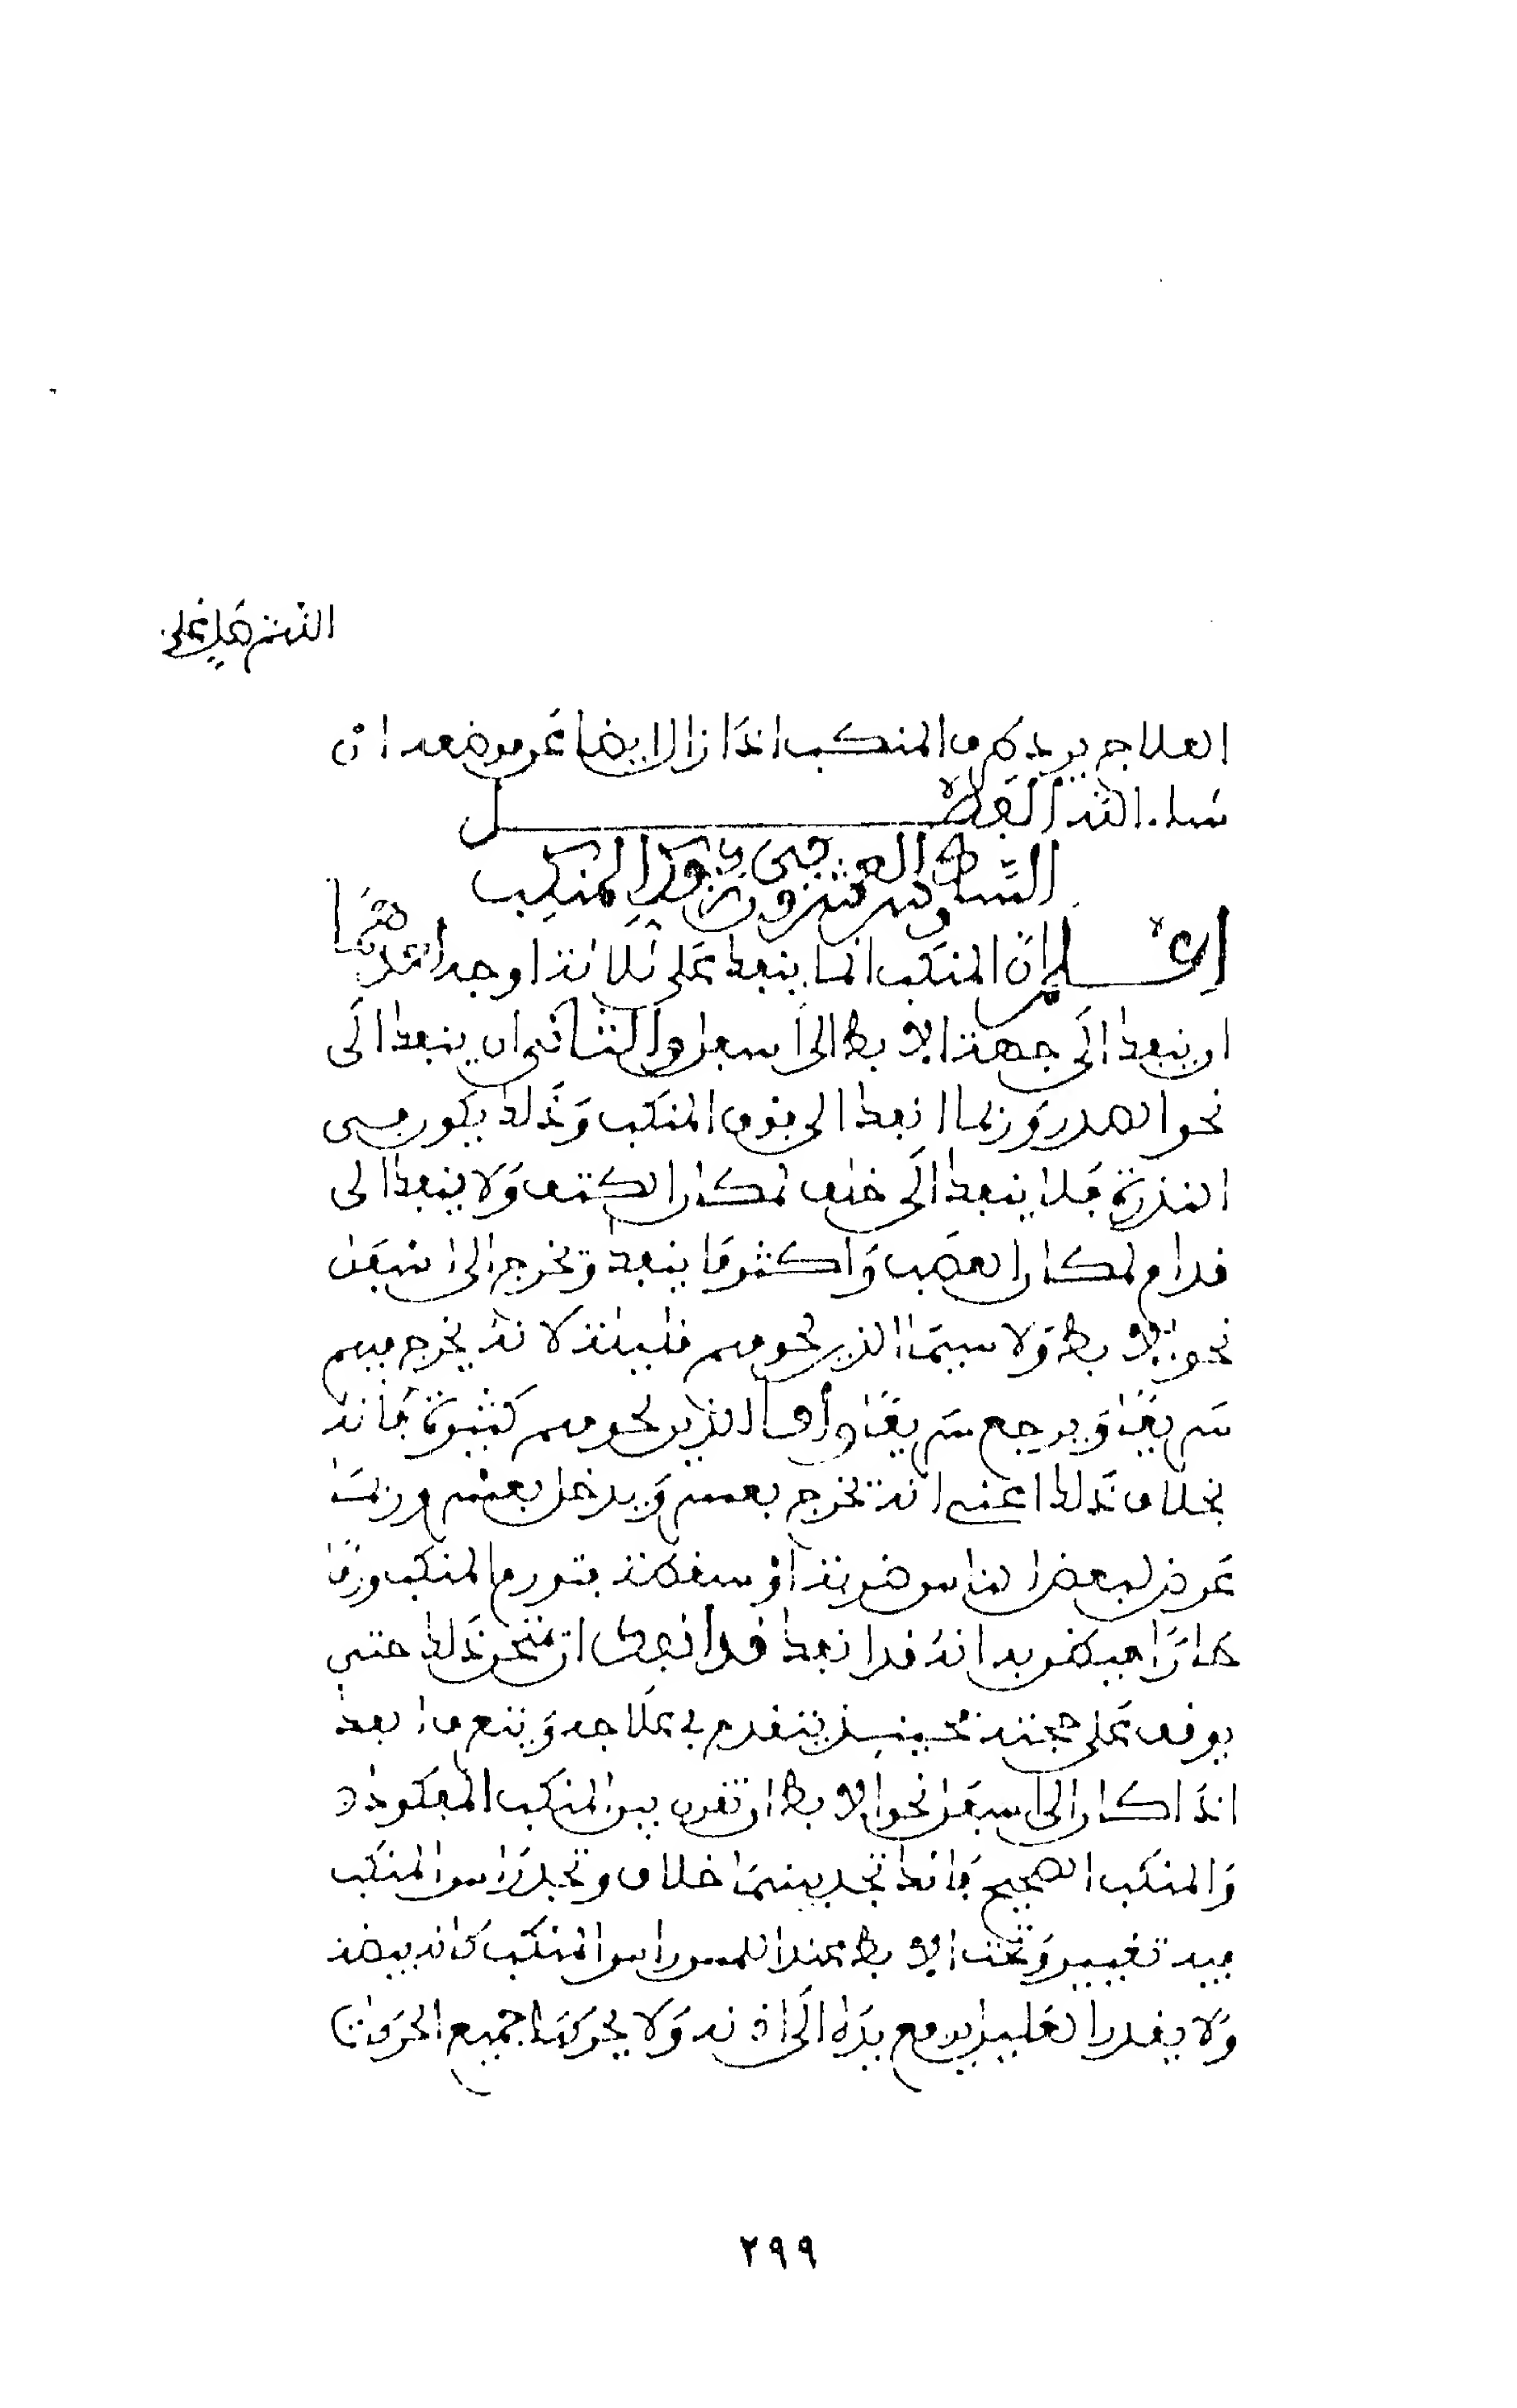 اللهم صل على
العلاج يرد طرف المنكب اذا زال ايضا عن موضعه ان
شاء الله الفصل
السادس والعشرون في فك المنكب
اعلم ان المنكب انما ينفك على ثلاثة اوجه احدهما
ان ينفك الى جهة الابط الى اسفل والثاني ان ينفك الى
نحو الصدر وربما انفك الى فوق المنكب وذلك يكون في
الندرة فلا ينفك الى خلف لمكان الكتف ولا ينفك الى
قدام لمكان العصب واكثر ما ينفك وتخرج الى اسفل
نحو الابط ولا سيما الذين لحومهم قليلة لانه يخرج فيهم
سريعا ويرجع سريعا وأما الذين لحومهم كثيرة فانه
بخلاف ذلك اعني انه تخرج بعسر ويدخل بعسر وربما
عرض لبعض الناس ضربة أو سقطة فتورم المنكب وربما
حارا فيظن به انه قد انفك قد انفك ان تمتحن ذلك حتى
يوقف على صحته فحينئذ يتقدم في علاجه ويتعرف افك
اذا كان الى اسفل نحو الابط ان تفرق بين المنكب المفكوك
والمنكب الصحيح فانك تجد بينهما خلاف وتجد راس المنكب
فيه تغيير وتحت الابط عند اللمس راس المنكب كانه بيضة
ولا يقدر العليل ان يرفع يده الى اذنه ولا يحركها جميع الحركات
٢٩٩